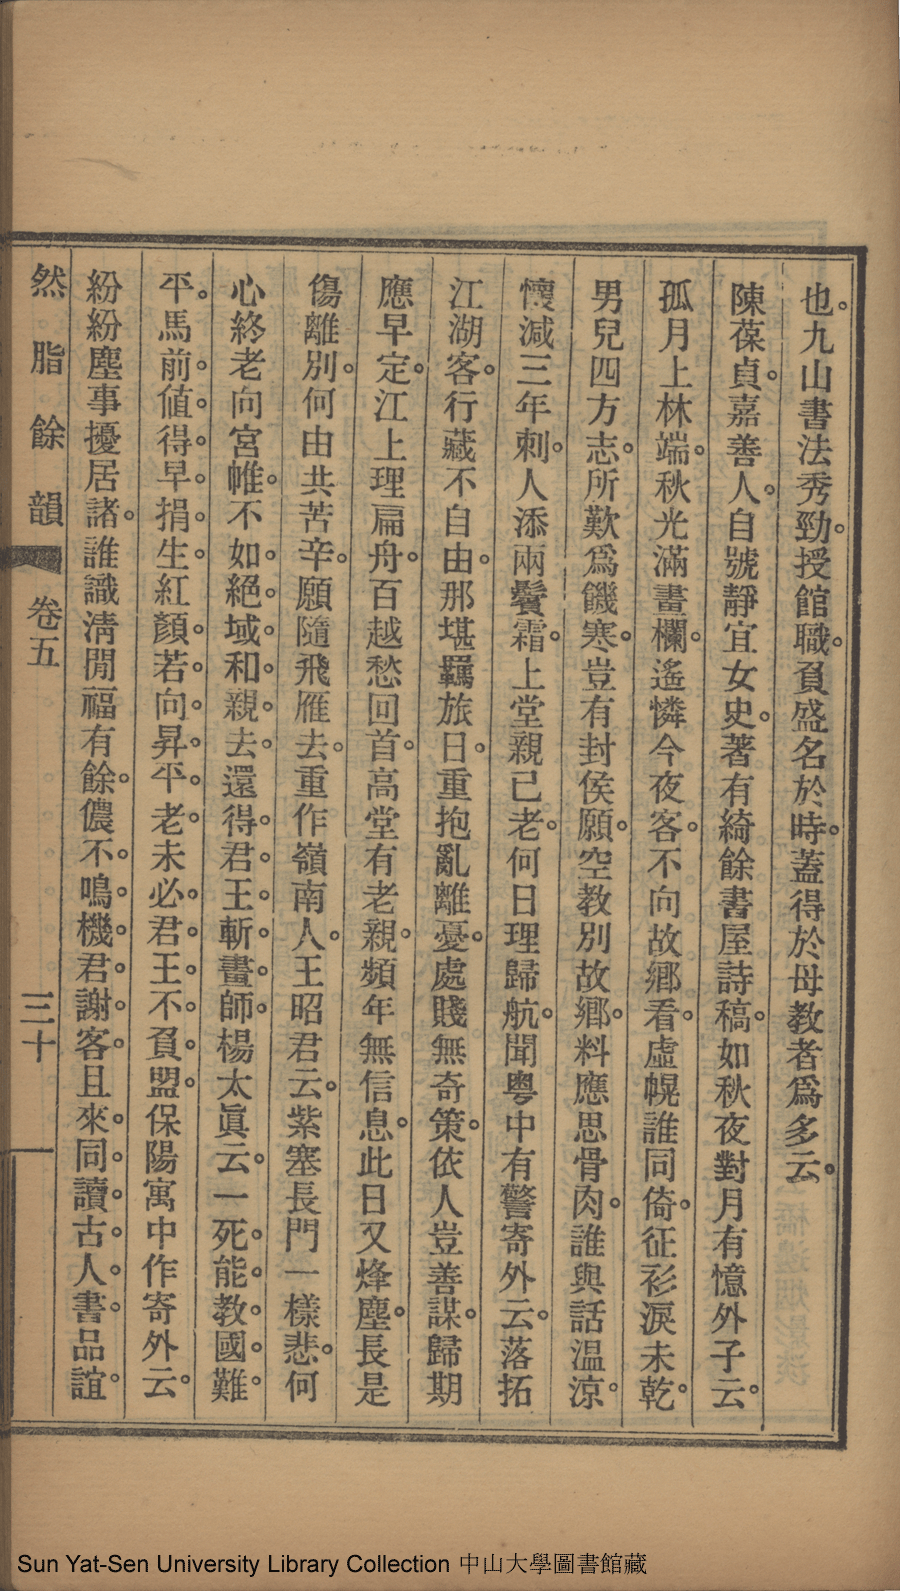 也。九山書法秀勁。授館職。負盛名於時。蓋得於母教者爲多云。
陳葆貞。嘉善人。自號靜宜女史。著有綺餘書屋詩稿。如秋夜對月有憶外子云。
孤月上林端。秋光滿畫欄。遙憐今夜客。不向故鄉看。虛幌誰同倚。征衫淚未乾。
男兒四方志。所歎爲饑寒。豈有封侯願。空教別故鄉。料應思骨肉。誰與話溫涼。
懷減三年刺。人添兩鬢霜。上堂親已老。何日理歸航。聞粵中有警寄外云。落拓
江湖客。行藏不自由。那堪羈旅日。重抱亂離憂。處賤無奇策。依人豈善謀。歸期
應早定。江上理扁舟。百越愁回首。高堂有老親。頻年無信息。此日又烽塵。長是
傷離別。何由共苦辛。願隨飛雁去。重作嶺南人。王昭君云。紫塞長門一樣悲。何
心終老向宮帷。不如絕域和親去。還得君王斬畫師。楊太眞云。一死能教國難
平。馬前値得早捐生。紅顏若向昇平老。未必君王不負盟。保陽寓中作寄外云。
紛紛塵事擾居諸。誰識淸閒福有餘。儂不鳴機君謝客。且來同讀古人書。品誼
然脂餘韻 卷五 三十
Sun Yat-Sen University Library Collection 中山大學圖書館藏